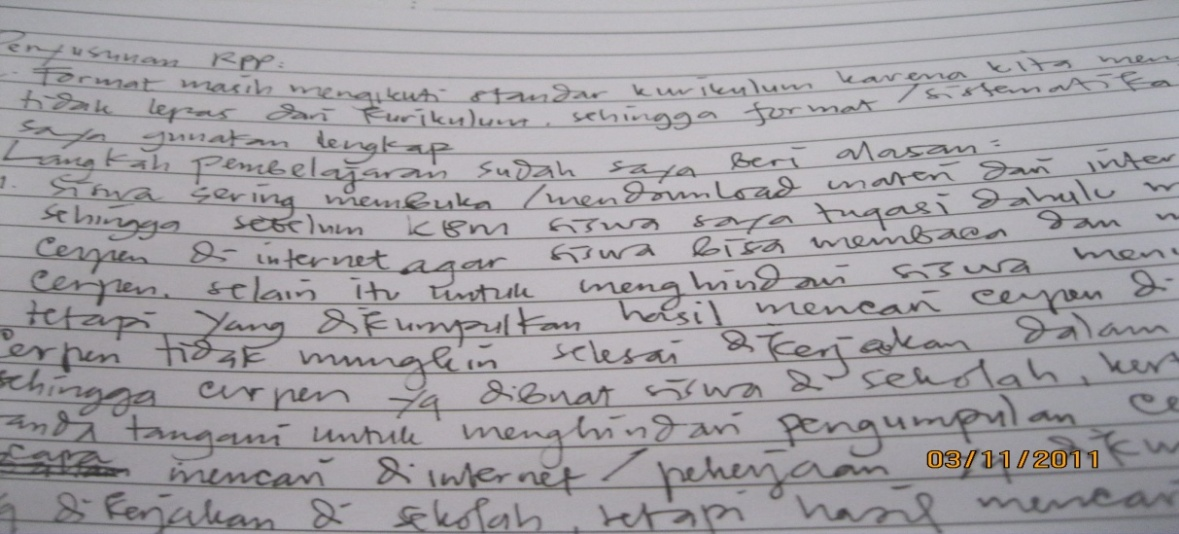 Penyusunan RPP:
- Format masih mengikuti standar kurikulum karena kita men
tidak lepas dari kurikulum, sehingga format / sistematika
saya gunakan lengkap
Langkah pembelajaran sudah saya beri alasan:
1. Siswa sering membuka / mendownload materi dari inter
sehingga sebelum KBM siswa saya tugasi dahulu m
cerpen di internet agar siswa bisa membaca dan m
cerpen. selain itu untuk menghindari siswa men
tetapi yang dikumpulkan hasil mencari cerpen di
cerpen tidak mungkin selesai dikerjakan dalam
sehingga cerpen yg dibuat siswa di sekolah, ker
anda tangani untuk menghindari pengumpulan ce
mencari di internet / pekerjaan
dikerjakan di sekolah, tetapi hasil mencari
03/11/2011